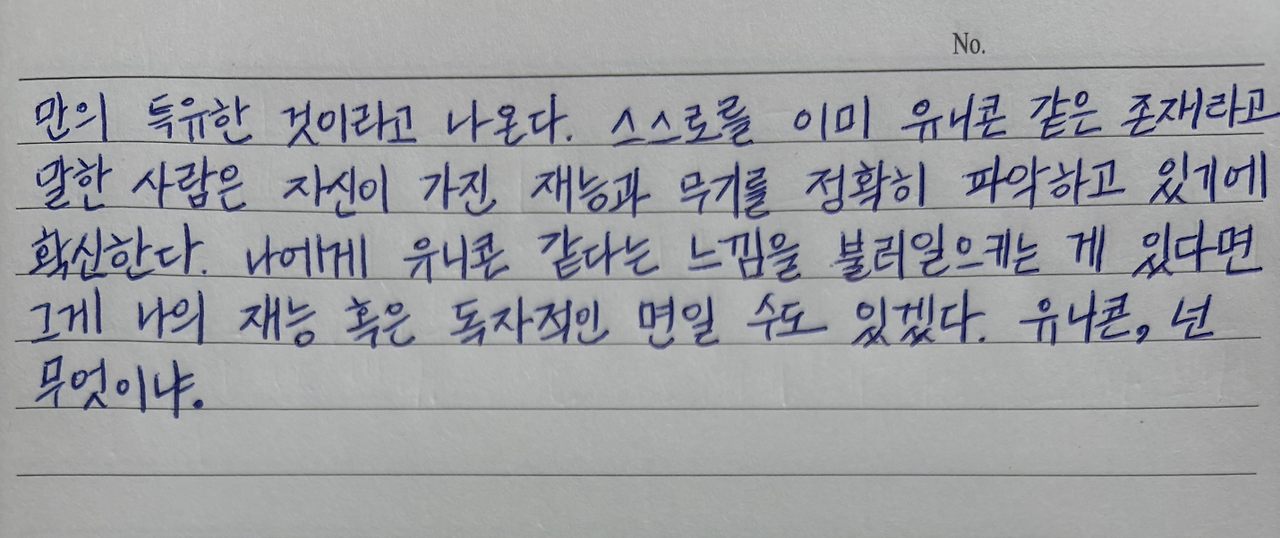 No.
만의 특유한 것이라고 나온다. 스스로를 이미 유니콘 같은 존재라고
말한 사람은 자신이 가진 재능과 무기를 정확히 파악하고 있기에
확신한다. 나에게 유니콘 같다는 느낌을 불러일으키는 게 있다면
그게 나의 재능 혹은 독자적인 면일 수도 있겠다. 유니콘, 넌
무엇이냐.